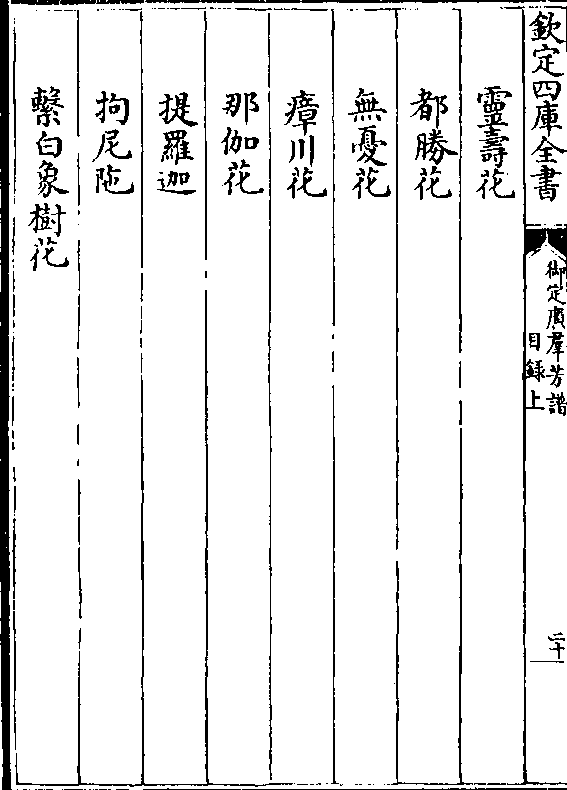 欽定四庫全書
御定廣羣芳譜
目錄上
二十
靈壽花
都勝花
無憂花
瘴川花
那伽花
提羅迦
拘尼陁
繫白象樹花